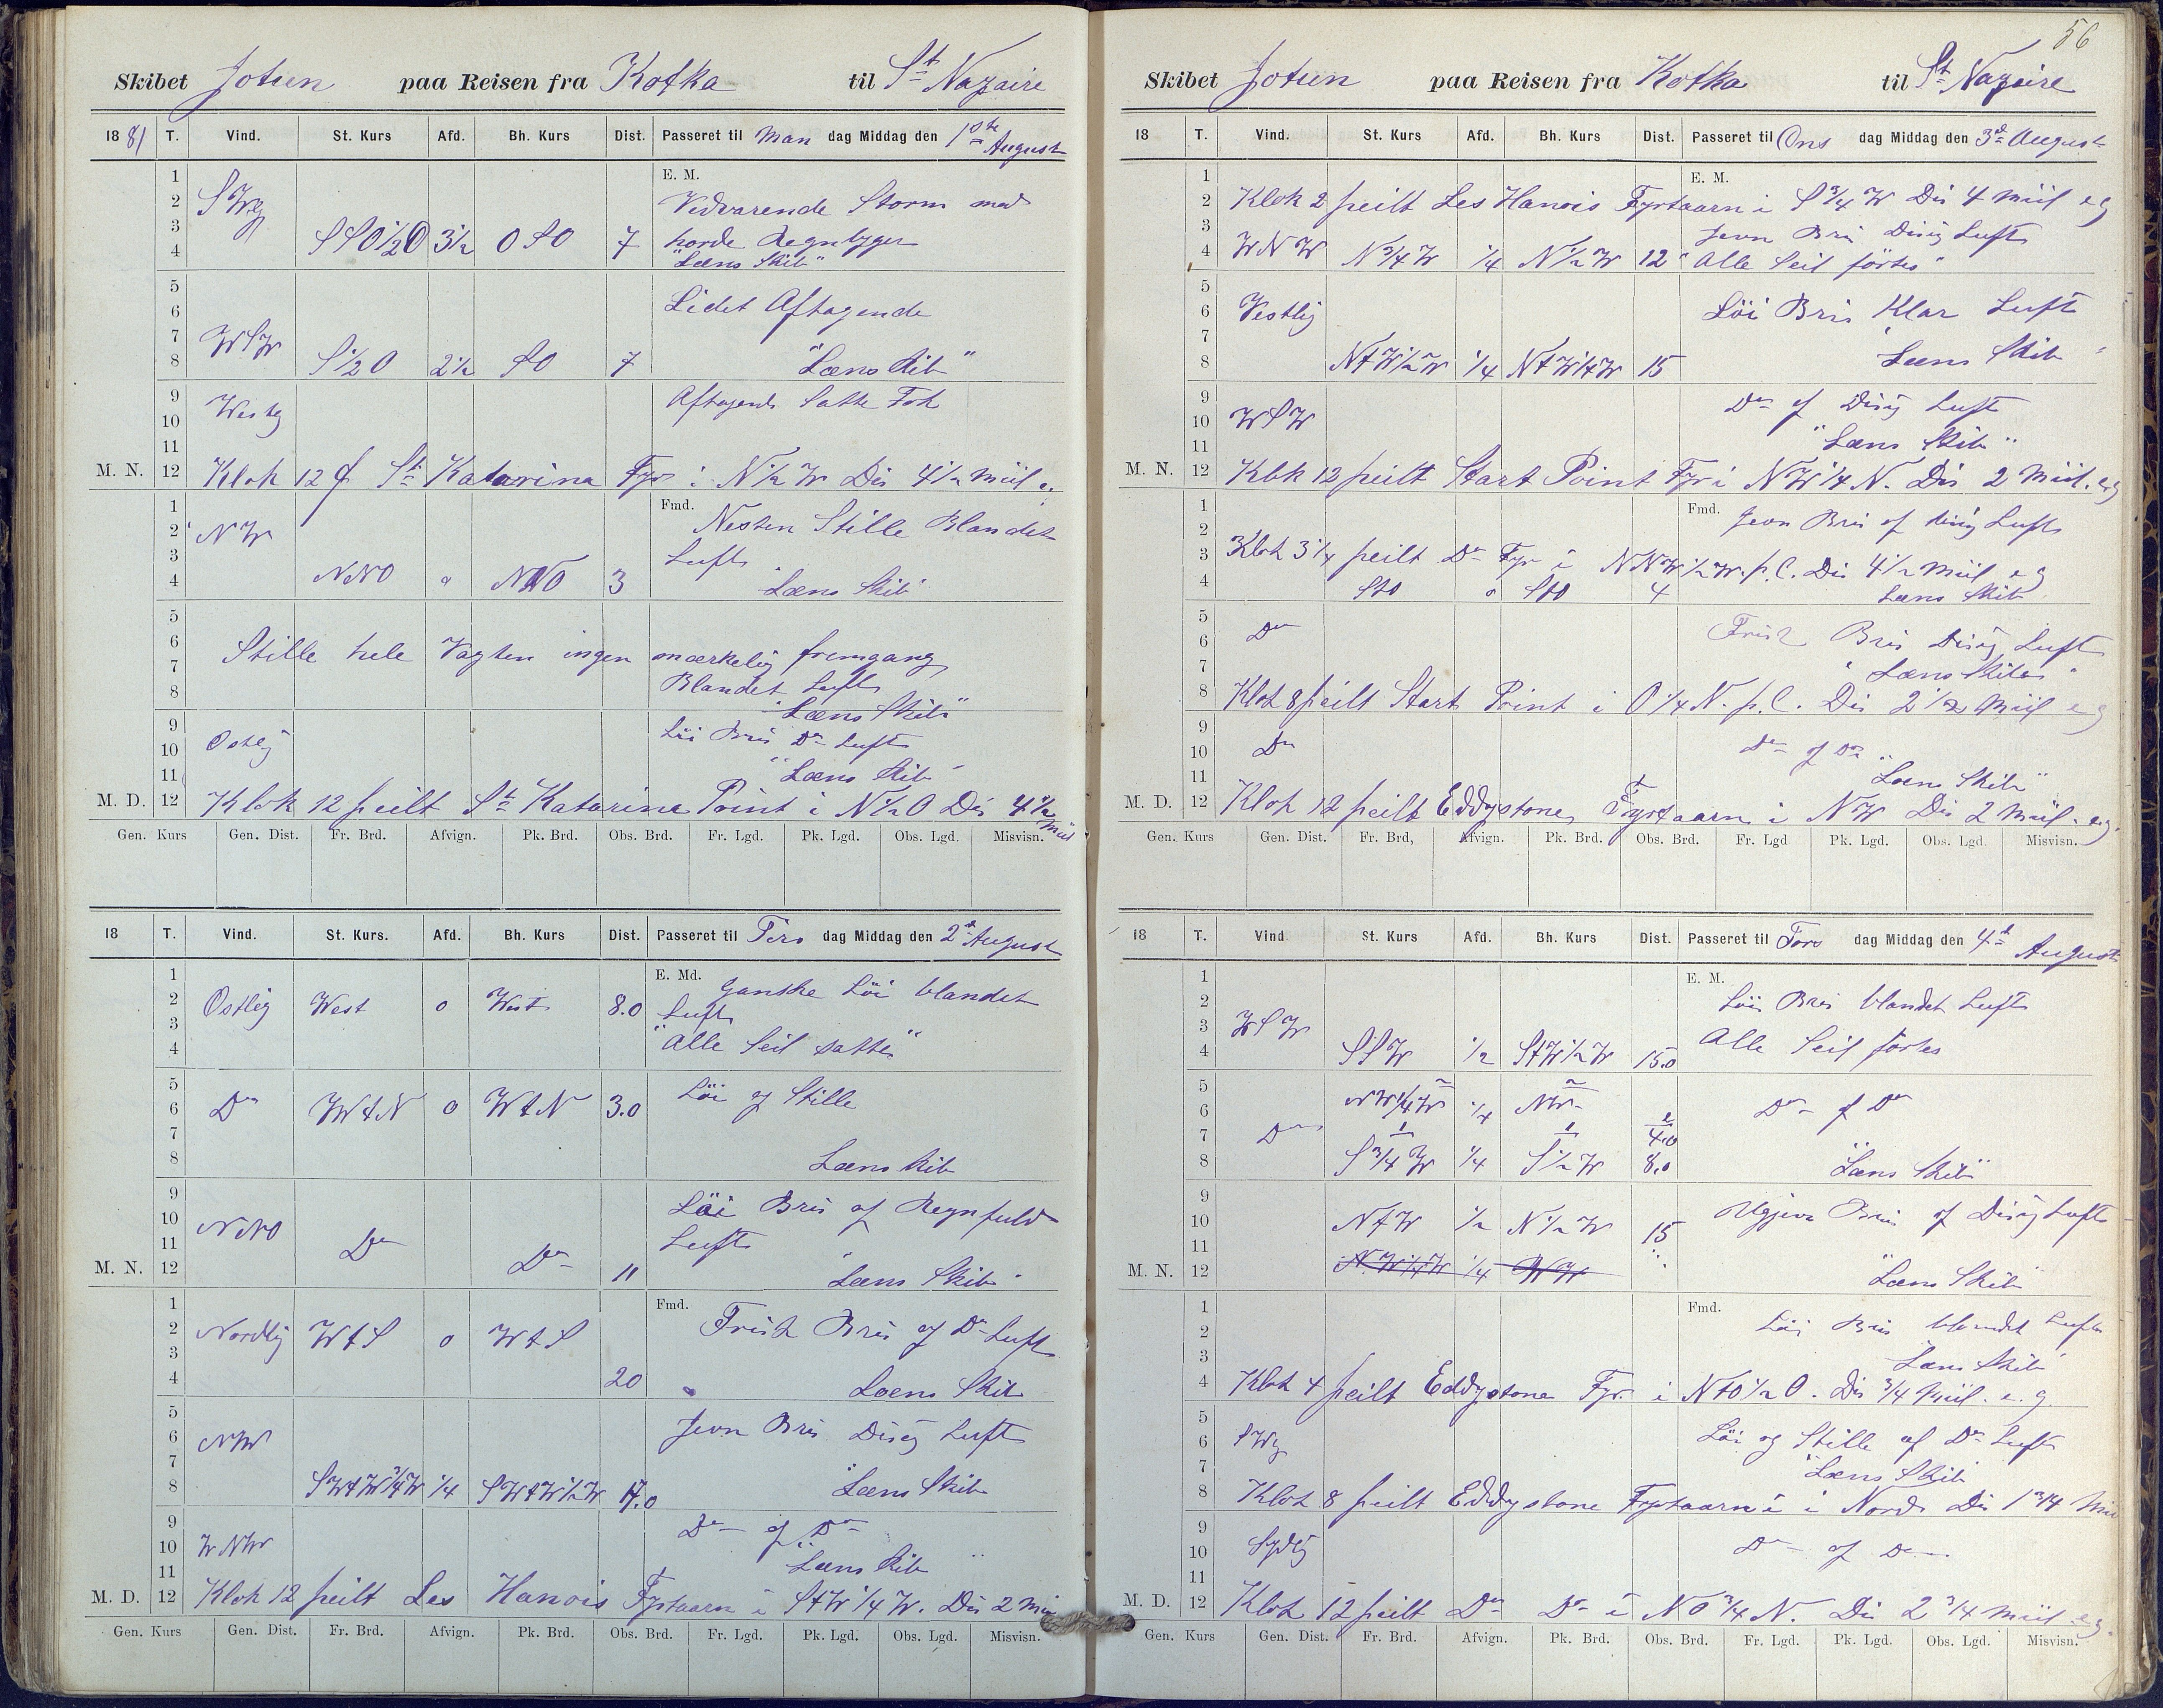 Skibet Jotun paa Reisen fra Kotka til St Nazaire
1881 T. Vind. St. Kurs Afd. Bh. Kurs Dist. Passeret til Man dag Middag den 1ste August
E. M.
1
2 SWlg Vedvarende Storm med
3 harde Regnbyger
4 SSO½O 3½ OSO 7 "Læns Skib"
5
6 Lidet Aftagende
7 WSW
8 S½O 2½ SO 7 "Læns Skib"
9 Aftagende Satte Fok
10 Westlig
11
M. N. 12 Klok 12 St Katarina Fyr i N½W Dis 4½ Miil
Fmd.
1 Nesten Stille Blandet
2 NW
3 Luft
4 NNO o NNO 3 Læns Skib
5
6 Stille hele Vagten ingen mærkelig fremgang
7 Blandet Luft
8 "Læns Skib"
9 Löi Bris Do Luft
10 Ostlig
11 "Læns Skib"
M. D. 12 Klok 12 peilt St Katarina Point i N½O Dis 4½ Miil
Gen. Kurs Gen. Dist. Fr. Brd. Afvign. Pk. Brd. Obs. Brd. Fr. Lgd. Pk. Lgd. Obs. Lgd. Misvisn.
18 T. Vind. St. Kurs. Afd. Bh. Kurs Dist. Passeret til Tirs dag Middag den 2d August
E. Md.
1 Ganske Löi blandet
2 Ostlig West o West 8.0 Luft
3
4 "Alle Seil satte"
5 Löi og Stille
6 Do WtN o WtN 3.0
7
8 Læns Skib
9 Löi Bris og Regnfuld
10 NNO Luft
11 Do Do
M. N. 12 11 "Læns Skib"
Fmd.
1
2 Nordlig WtS o WtS Frisk Bris og Do Luft
3
4 20 Læns Skib
5 Jevn Bris Disig Luft
6 NW
7
8 SWtW¾W ¼ SWtW½W 17.0 Læns Skib
9 Do og Do
10 WNW
11 Læns Skib
M. D. 12 Klok 12 peilt Les Hanois Fyrtaarn i StW¼W. Dis 2 Miil
Gen. Kurs Gen. Dist. Fr. Brd. Afvign. Pk. Brd. Obs. Brd. Fr. Lgd. Pk. Lgd. Obs. Lgd. Misvisn.
56
Skibet Jotun paa Reisen fra Kotka til St Nazaire
18 T. Vind. St. Kurs Afd. Bh. Kurs Dist. Passeret til Ons dag Middag den 3d August
E. M.
1
2 Klok 2 peilt Les Hanois Fyrtaarn i S¾W Dis 4 Miil e g
3 Jevn Bris Disig Luft
4 WNW N¾W ¼ N½W 12 "Alle Seil förtes"
5
6 Vestlig Löi Bris Klar Luft
7
8 NtW½W ¼ NtW¼W 15 Læns Skib
9 Do og Disig Luft
10 WSW
11 "Læns Skib"
M. N. 12 Klok 12 peilt Start Point Fyr i NW¼N. Dis 2 Miil. e.g
Fmd.
1 Jevn Bris og disig Luft
2
3 Klok 3¼ peilt Do Fyr i NNW½W. p.C. Dis 4½ Miil e g
4 StO o StO 4 Læns Skib
5
6 Do Frisk Bris Disig Luft
7 "Læns Skib"
8 Klok 8 peilt Start Point i O¼N. p.C. Dis 2½ Miil e g
9
10 Do Do og Do
11 Læns Skib"
M. D. 12 Klok 12 peilt Eddystone Fyrtaarn i NW Dis 2 Miil. e.g.
Gen. Kurs Gen. Dist. Fr. Brd, Afvign. Pk. Brd. Obs. Brd. Fr. Lgd Pk. Lgd. Obs. Lgd. Misvisn.
18 T. Vind St. Kurs Afd. Bh. Kurs Dist. Passeret til Tors dag Middag den 4d August
E. M.
1
2 Löi Bris blandet Luft
3 WSW
4 SSW ½ StW½W 15.0 Alle Seil förtes
5
6 NW¼W ¼ NW Do og Do
7 Do 4.0
8 S¾W ¼ S½W 8.0 "Læns Skib"
9
10 NtW ½ N½W 15 Ugjevn Bris og Disig Luft
11
M. N. 12 NW¼W ¼ NW "Læns Skib"
Fmd.
1 Löi Bris blandet Luft
2
3 Læns Skib
4 Klok 4 peilt Eddystone Fyr. i NtO½O. Dis ¾ Miil. e. g
5
6 SWlg Löi og Stille og Do Luft
7 "Læns Skib
8 Klok 8 peilt Eddystone Fyrtaarn i Nord Dis 1¾ Miil
9
10 Sydlig Do og Do
11
M. D. 12 Klok 12 peilt Do Do i NO¾N. Dis 2¾ Miil e g.
Gen. Kurs Gen. Dist. Fr. Brd. Afvign. Pk. Brd. Obs. Brd. Fr. Lgd. Pk. Lgd. Obs. Lgd. Misvisn.